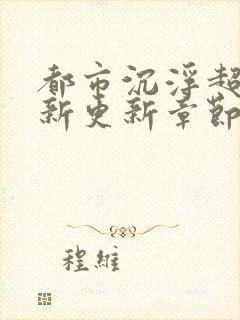 都市沉浮超
新更新章節
程維